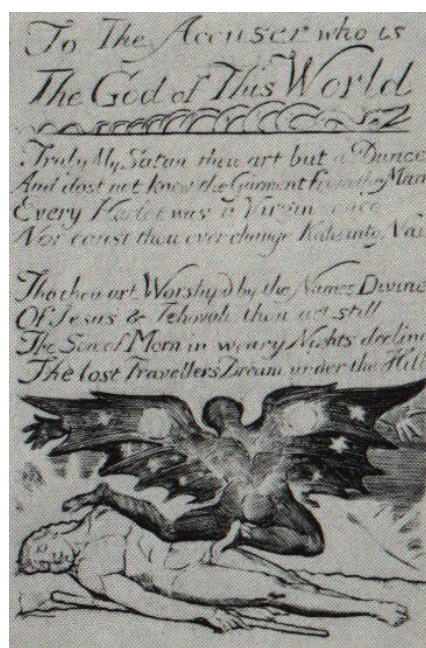 To The Accuser who is
The God of This World
Truly My Satan thou art but a Dunce
And dost not know the Garment from the Man
Every Harlot was a Virgin once
Nor canst thou ever change Kate into Nan
Tho thou art Worship'd by the Names Divine
Of Jesus & Jehovah thou art still
The Son of Morn in weary Nights decline
The lost Travellers Dream under the Hill